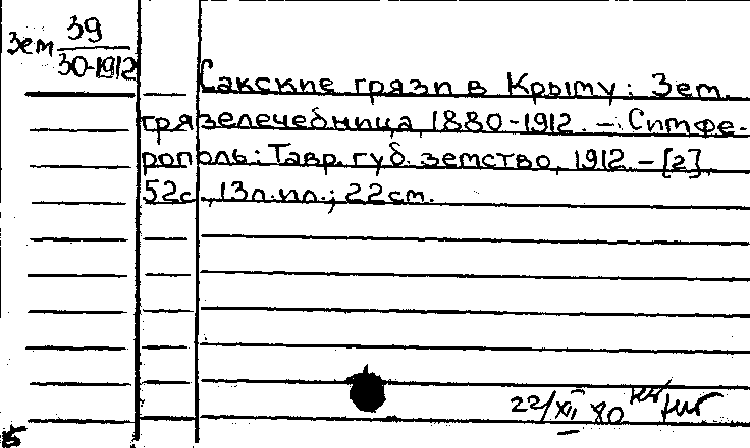 Зем 39
30-1912
Сакские грязи в Крыму: Зет.
грязелечебница, 1880-1912. – Симфе-
рополь: Тавр. губ. земство, 1912 – [2],
52с., 13л.ил.; 22см.
22/XII 80